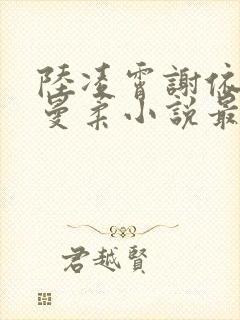 陸凌霄謝依
曼柔小說最
君越賢